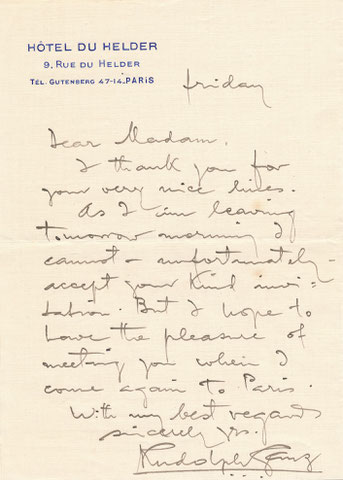 HÔTEL DU HELDER
9, RUE DU HELDER
TÉL. GUTENBERG 47-14. PARIS
Friday
Dear Madam,
I thank you for
your very nice lines.
As I am leaving
tomorrow morning I
cannot - unfortunately -
accept your kind invi-
tation. But I hope to
have the pleasure of
meeting you when I
come again to Paris.
With my best regards
sincerely yrs.
Rudolph Ganz